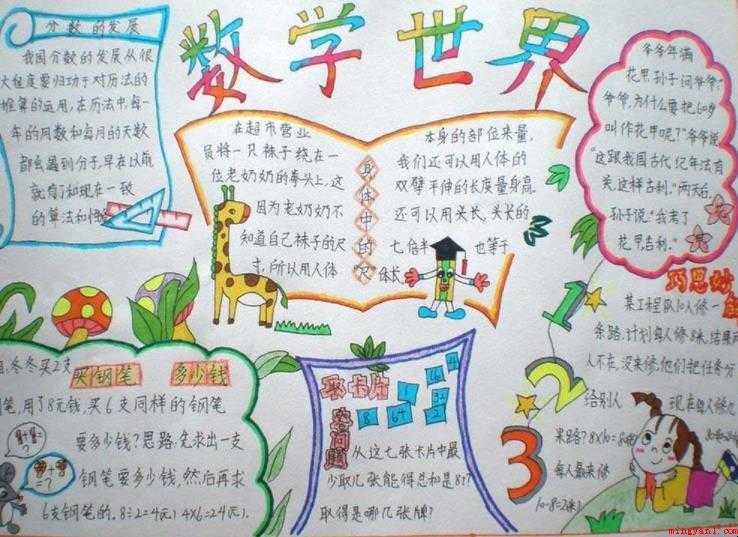 数学世界
分数的发展
我国分数的发展从很
大程度要归功于对历法的
推算的运用,在历法中,每一
年的周数和每月的天数
都会遇到分子,早在以前
就有了和现在一致
的算法和
身体中的“尺”
在超市营业
员将一只袜子绕在一
位老奶奶的拳头上,这
因为老奶奶不
知道自己袜子的尺
寸,所以用人体
本身的部位来量,
我们还可以用人体的
双臂平伸的长度量身高.
还可以用头长,头长的
七倍半 也等于
体长
爷爷年满
花甲,孙子问爷爷:“
爷爷,为什么要把60岁
叫作花甲呢?”爷爷说
“这跟我国古代纪年法有
关,这样吉利.”两天后,
孙子说:“我老了
花甲,吉利.”
买钢笔 多少钱
冬冬买2支
笔,用了8元钱,买6支同样的钢笔
要多少钱?思路:先求出一支
钢笔要多少钱,然后再求
6支钢笔的. 8÷2=4(元) 4×6=24(元).
取卡片
的问题
从这七张卡片中最
少取几张能得总和是8?
取得是哪几张牌?
巧思妙
1
2
3
某工程队10人修一
条路,计划每人修8米,结果
人不在,没来修,他们把任务分
给别人 现在每人修几
米路? 8×10=80
每人
10-8=2(米)
mingyaxl.com